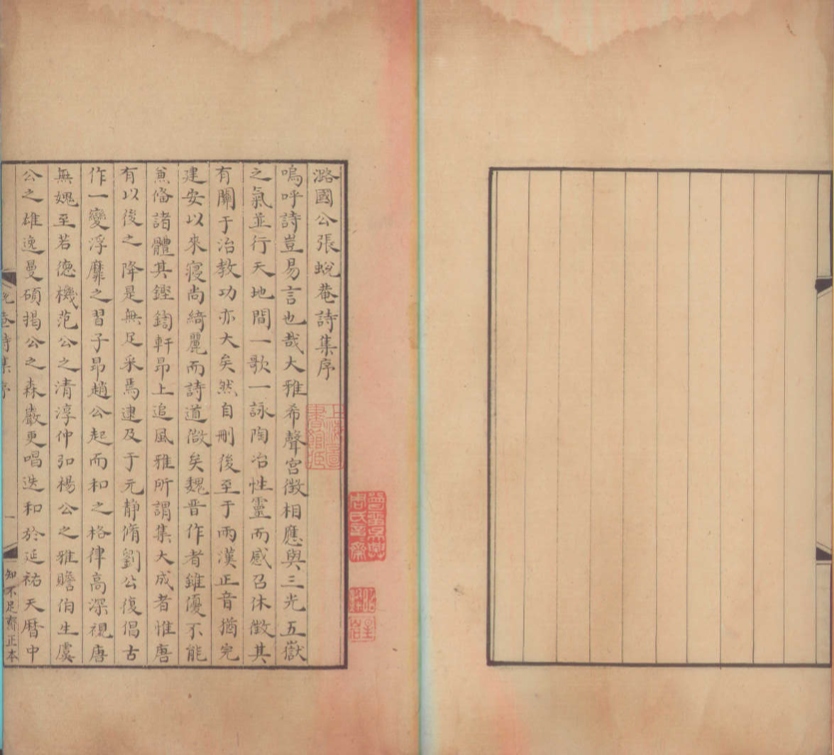 潞國公張蛻菴詩集序
嗚呼詩豈易言也哉大雅希聲宮徵相應與三光五嶽
之氣並行天地間一歌一詠陶冶性靈而感召休徵其
有關于治教功亦大矣然自刪後至于兩漢正音猶完
建安以來寖尚綺麗而詩道微矣魏晉作者雖優不能
兼俻諸體其鏗鍧軒昂上追風雅所謂集大成者惟唐
有以後之降是無足采焉逮及于元靜脩劉公復倡古
作一變浮靡之習子昂趙公起而和之格律高深視唐
無媿至若德機范公之清淳仲弘楊公之雅贍伯生虞
公之雄逸曼碩揭公之森嚴更唱迭和於延祐天曆中
蛻菴詩集序
一
知不足齋正本